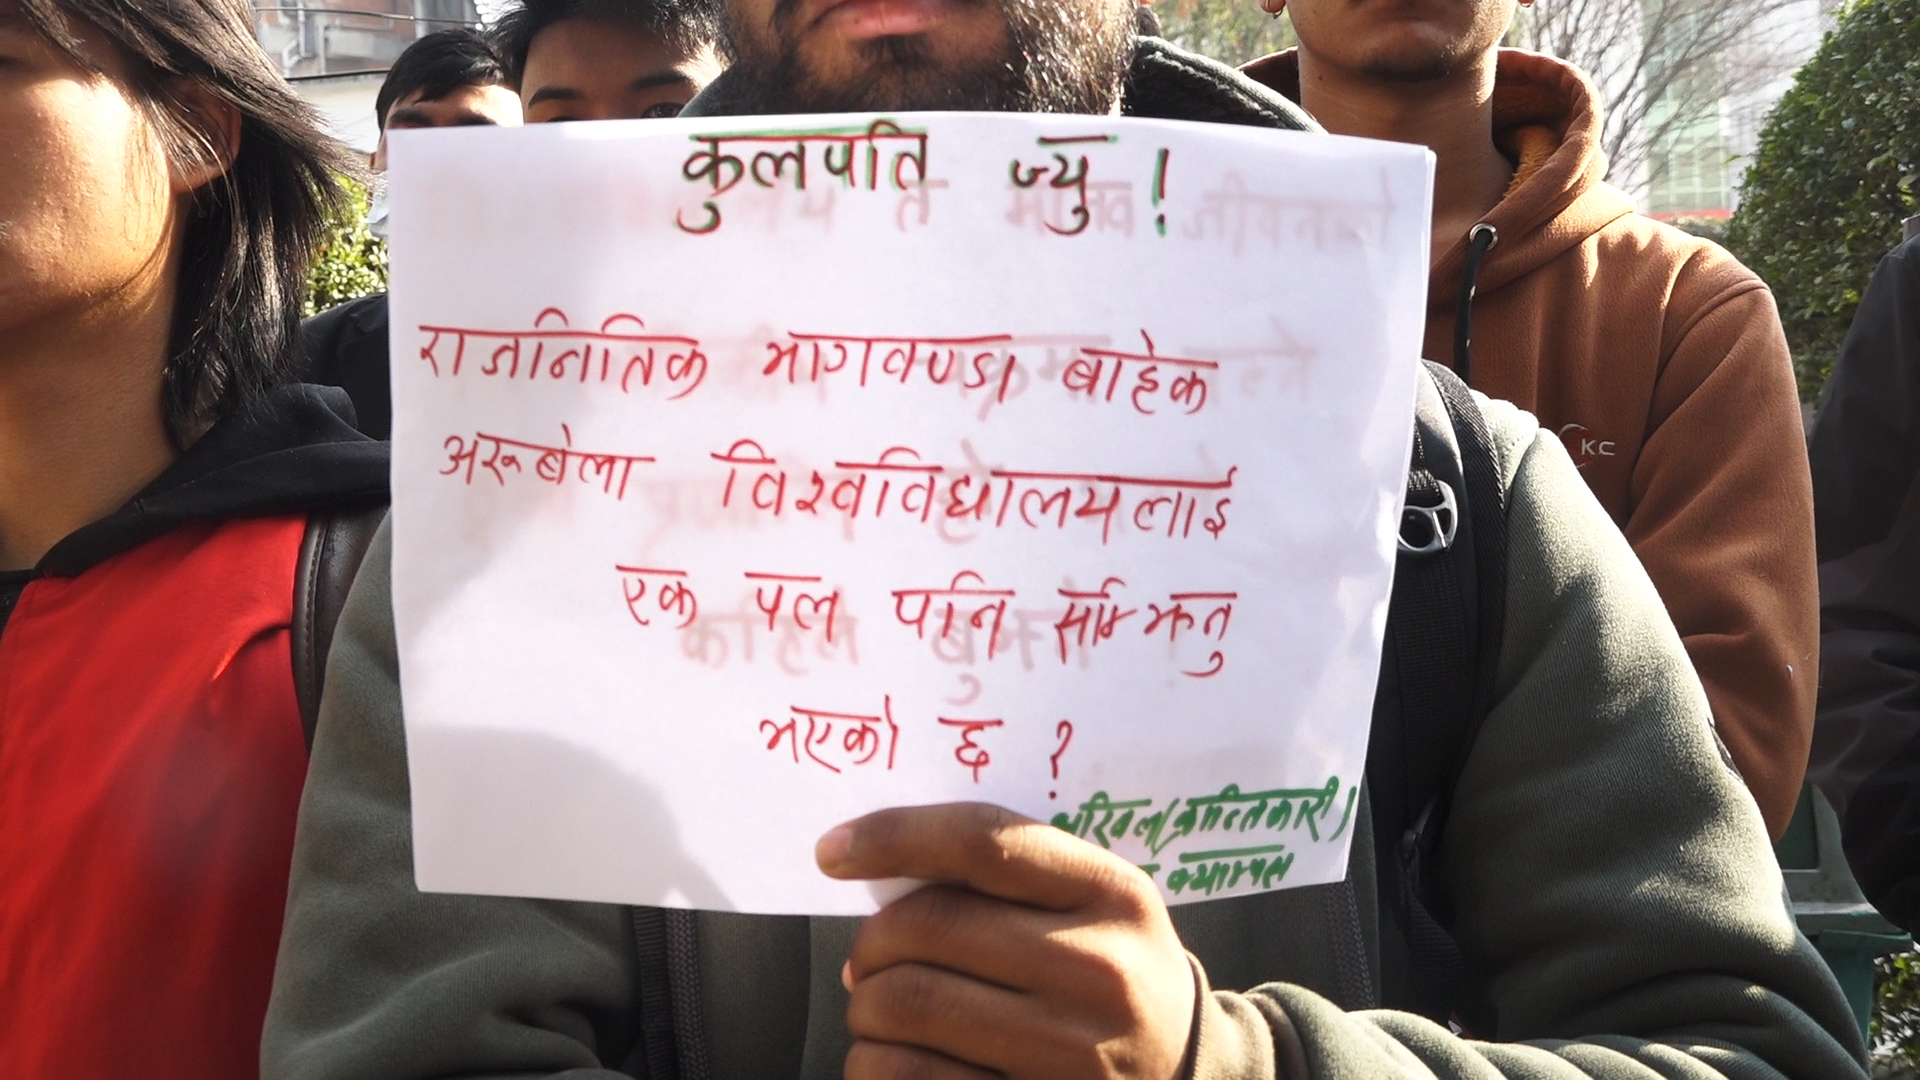 कुलपति ज्यु !
राजनितिक भागवण्डा बाहेक
अरूबेला विश्वविद्यालयलाई
एक पल पनि सम्झिनु
भएको छ ?
अखिल(क्रान्तिकारी)
क्याम्पस
KC